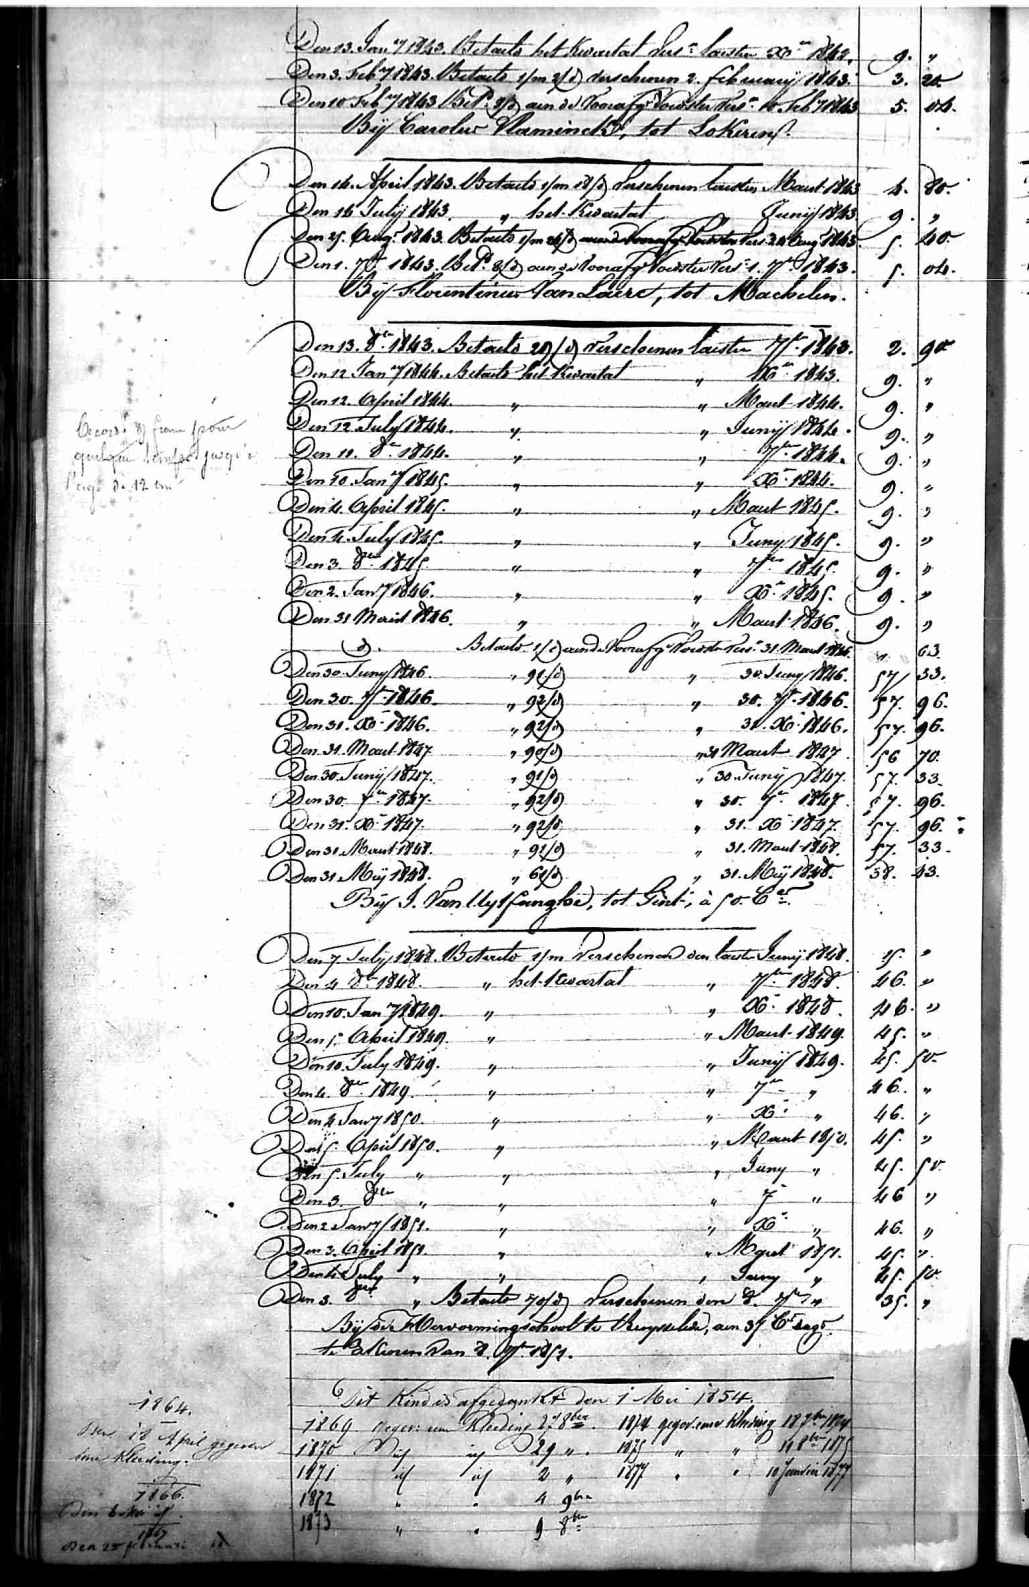 Den 13. Jan.y 1843. Betaelt het Kwartal Vers.n laesten Xr 1842. 9. "
Den 3. Feb.y 1843. Betaelt 1/m 2/d verschenen 2. february 1843. 3. 20
Den 10 Feb.y 1843 Bet.d 8/d aen de voorafg. Voedster Vers.n 10. Feb.y 1843 5. 04.
Bij Carolus Vlaminckx, tot Lokeren.
Den 14. April 1843. Betaelt 1/m 18/d Verschenen laesten Maert 1843 4. 80.
Den 14 July 1843. " het Kwartal Junij 1843 9. "
Den 25. Aug. 1843. Betaelt 1/m 24/d aen de voorafg. Voedster Vers. 24 Aug. 1843 5. 40.
Den 1. 7r 1843. Bet.d 8/d aen de voorafg. Voedster Vers. 1. 7r 1843. 5. 04.
Bij Florentinus Van Laere, tot Machelen.
Den 13. 8er 1843. Betaelt 29/d Verschenen laesten 7r 1843. 2. 90
Den 12 Jan.y 1844. Betaelt het Kwartal " Xr 1843. 9. "
Den 12. April 1844. " " Maert 1844. 9. "
Den 12. July 1844. " " Junij 1844. 9. "
Den 11. 8er 1844. " " 7er 1844. 9. "
Den 10. Jan.y 1845. " " Xr 1844. 9. "
Den 4. April 1845. " " Maert 1845. 9. "
Den 4. July 1845. " " Juny 1845. 9. "
Den 3. 8er 1845 " " 7er 1845. 9. "
Den 2. Jan.y 1846. " " Xr 1845. 9. "
Den 31 Maert 1846. " " Maert 1846. 9. "
d. Betaelt 1/d aen de voorafg. Voedster Vers. 31. Maert 1846. " 63
Den 30. Juny 1846. " 91/d " 30. Juny 1846. 57 33.
Den 30. 7r 1846. " 92/d " 30. 7r 1846. 57. 96.
Den 31. Xr 1846. " 92/d " 31. Xr 1846. 57. 96.
Den 31. Maert 1847. " 90/d " 31 Maert 1847 56 70.
Den 30. Junij 1847. " 91/d " 30. Junij 1847. 57. 33
Den 30. 7er 1847. " 92/d " 30. 7er 1847. 57. 96.
Den 31. Xr 1847. " 92/d " 31. Xr 1847. 57. 96.
Den 31. Maert 1848. " 91/d " 31. Maert 1848. 57. 33.
Den 31 Meij 1848. " 61/d " 31. Meij 1848. 38. 43.
Bij J. Van Uytfanghe, tot Gent, à 50 C.
Den 7 July 1848. Betaelt 1/m Verschenen den laesten Junij 1848. 15. "
Den 4 8er 1848. " het Kwartal " 7er 1848. 46. "
Den 10. Jan.y 1849. " " Xr 1848. 46. "
Den 5. April 1849. " " Maert 1849. 45. "
Den 10. July 1849. " " Junij 1849. 45. 50.
Den 4. 8er 1849. " " 7er " 46. "
Den 4 Jan.y 1850. " " Xr " 46. "
Den 5. April 1850. " " Maert 1850. 45. "
Den 5. July " " " Juny " 45. 50.
Den 3. 8er " " " 7r " 46 "
Den 2 Jan.y 1851. " " Xr " 46. "
Den 3. April 1851 " " Maert 1851. 45. "
Den 4 July " " " Juny " 45. 50.
Den 3. 8er " Betaelt 70/d Verschenen den 8. 7r " 35. "
Bij de Hervormingschool te Ruysselede, aen 37 C. daegs.
te Rekenen van 8. 7r 1851.
Dit Kind is afgedankt den 1 Mei 1854.
1869 gegev. een Kleeding 27 8ber 1874 gegev. eene Kleeding 18 9ber 1874
1870 id id 29 " 1875 " " 14 8ber 1875
1871 id id 2 " 1877 " " 10 Januari 1877
1872 " " 4 9ber
1873 " " 9 8ber
Accordé 8 francs pour
quelque temps jusqu'à
l'age de 12 ans
1864.
Den 18 April gegeven
eene Kleeding.
1866.
Den 6 Mei id.
1867
Den 25 februari id